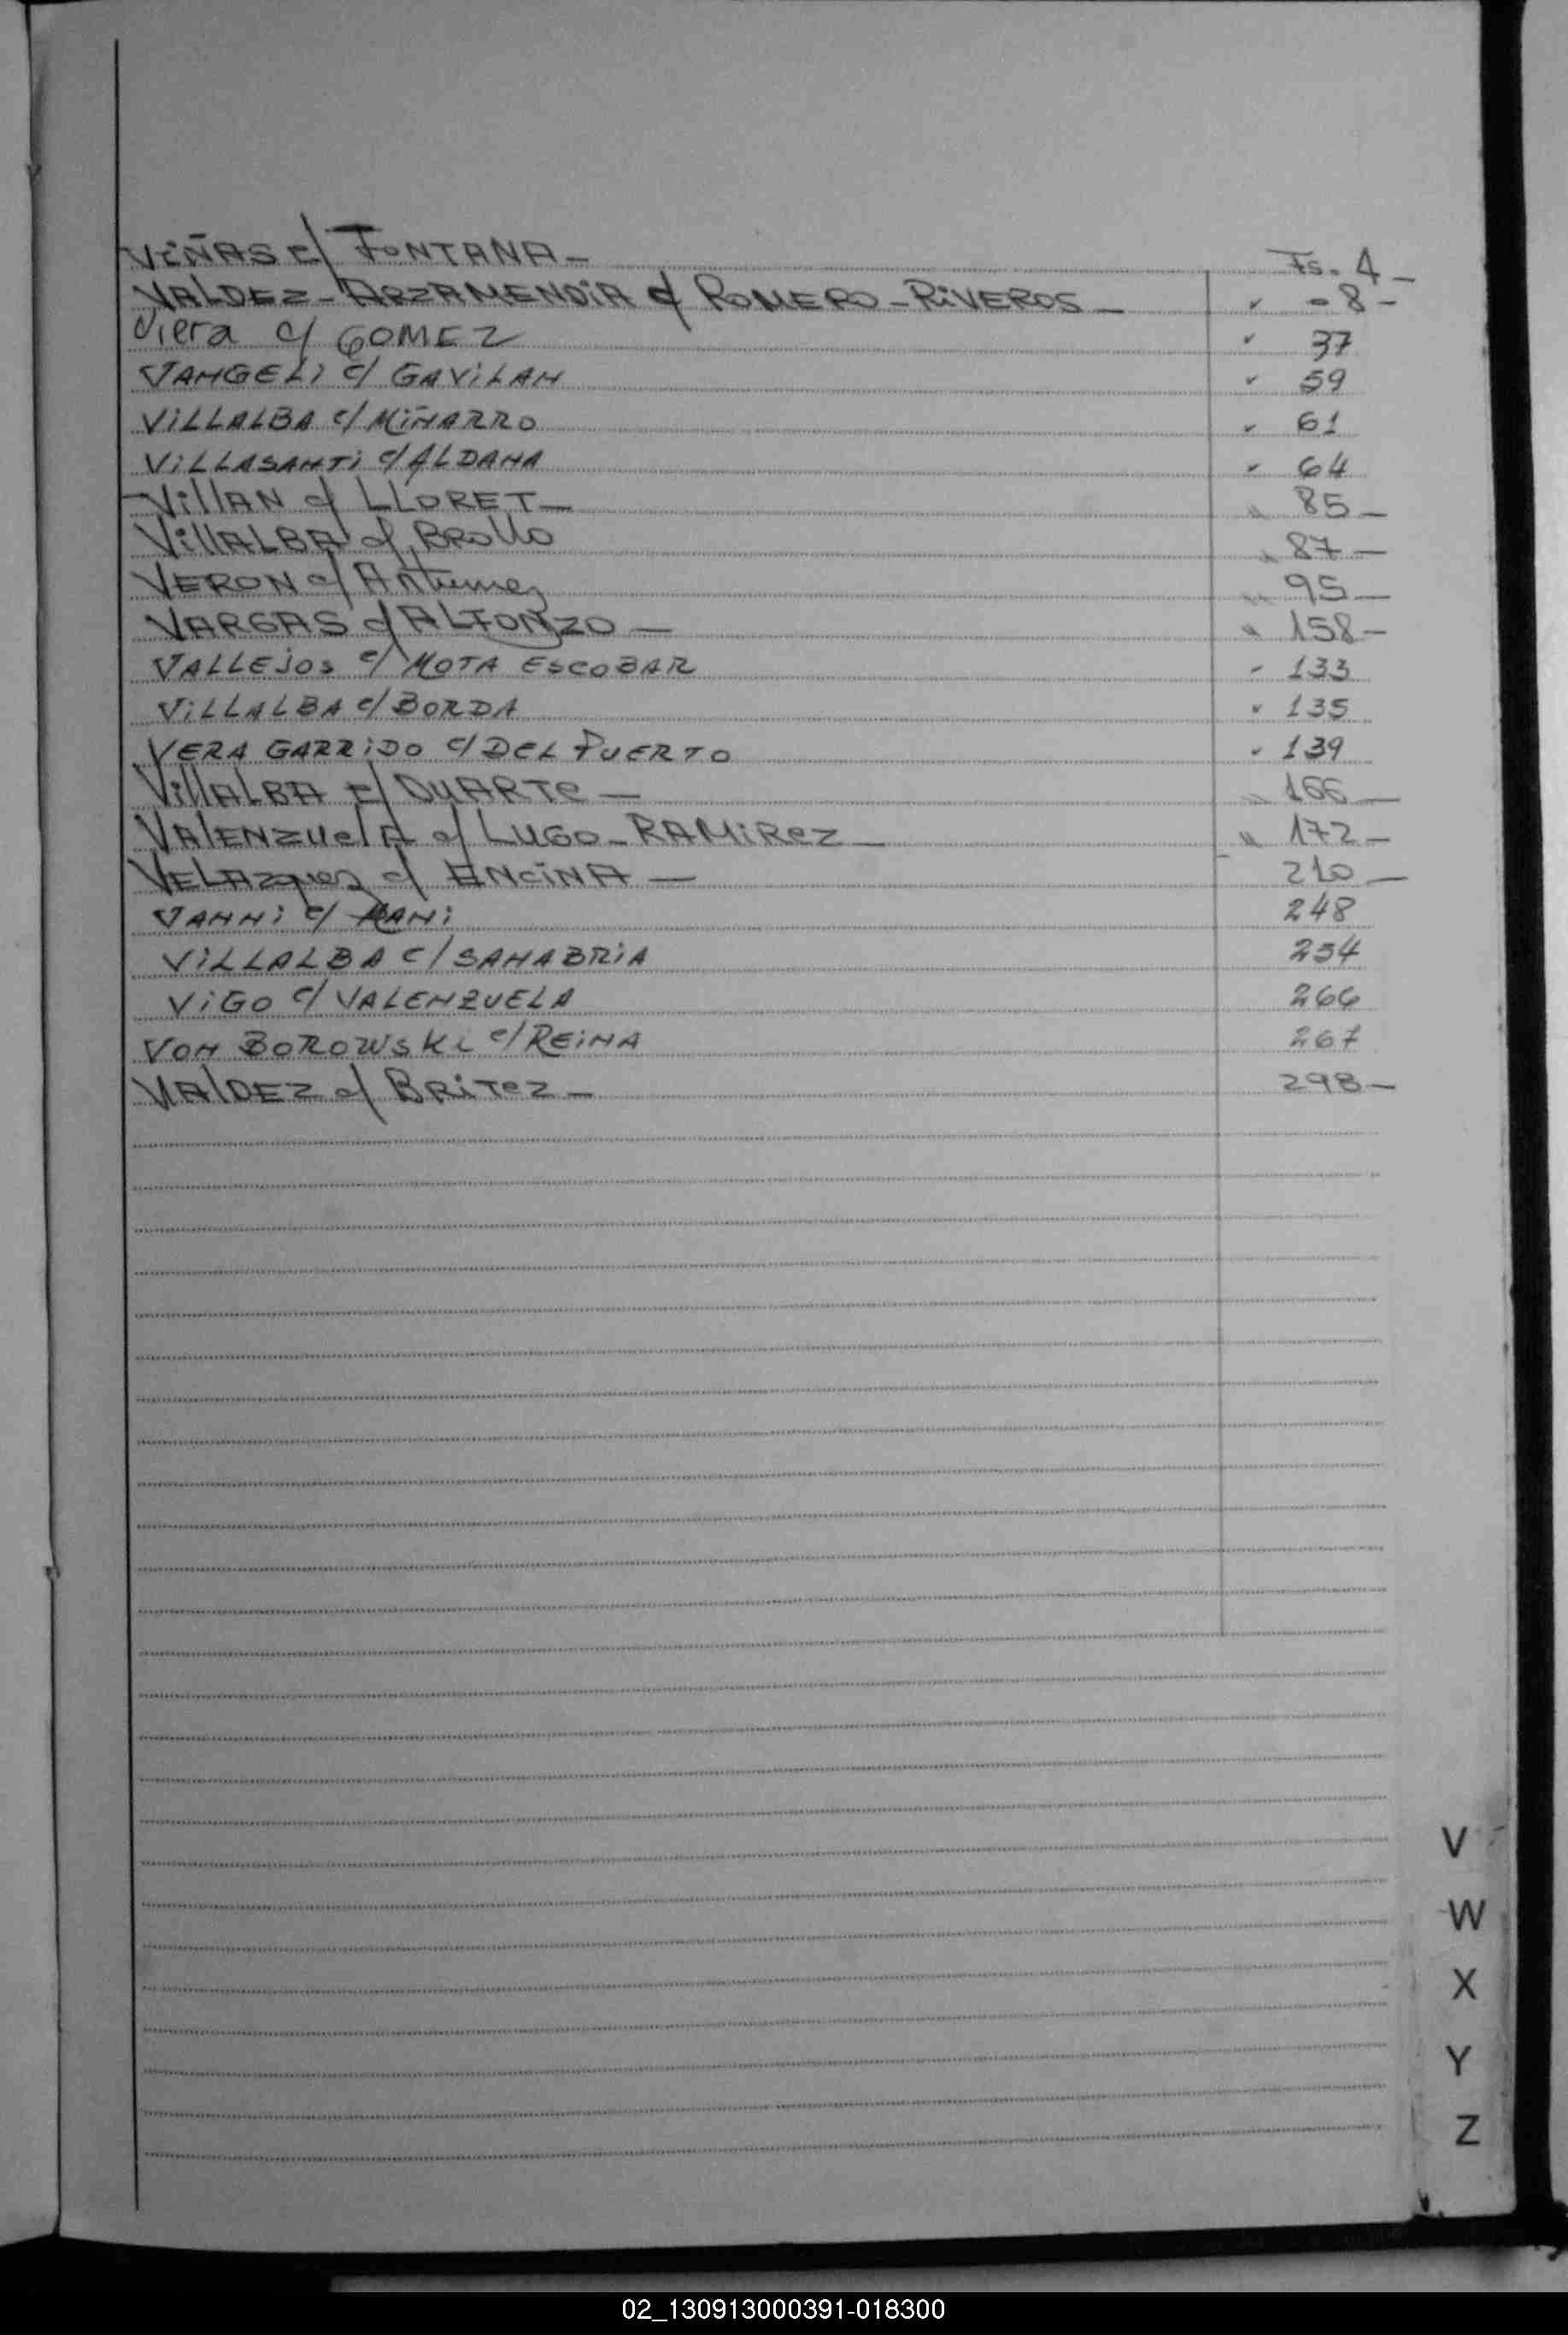 VIÑAS c/ FONTANA— Fs. 4—
VALDEZ-ARZAMENDIA c/ ROMERO-RIVEROS— " -8-
Viera c/ GOMEZ " 37
VANGELI c/ GAVILAN " 59
VILLALBA c/ MIÑARRO " 61
VILLASANTI c/ ALDANA " 64
VillAN c/ LLORET— " 85—
VillALBA c/ BRollo " 87—
VERON c/ Antunez " 95—
VARGAS c/ ALFONZO— " 158—
VALLEJOS c/ MOTA ESCOBAR " 133
VILLALBA c/ BORDA " 135
VERA GARRIDO c/ DEL PUERTO " 139
VillALBA c/ DUARTe— " 166—
VAlENZUelA c/ LUGO-RAMIRez— " 172—
VELAZquez c/ ENCINA— 210—
VANNI c/ 248
VILLALBA c/ SANABRIA 254
VIGO c/ VALENZUELA 266
VON BOROWSKI c/ REINA 267
VAlDEZ c/ BRITez— 298—
V
W
X
Y
Z
02_130913000391-018300